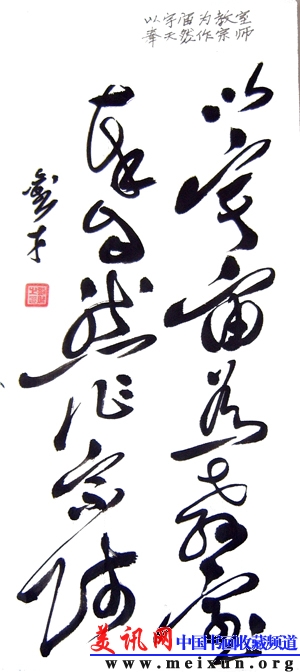 以宇宙为教室
奉天然作宗师
以宇宙为教室
奉自然作宗师
美讯网 中国书画收藏频道
www.meixun.org